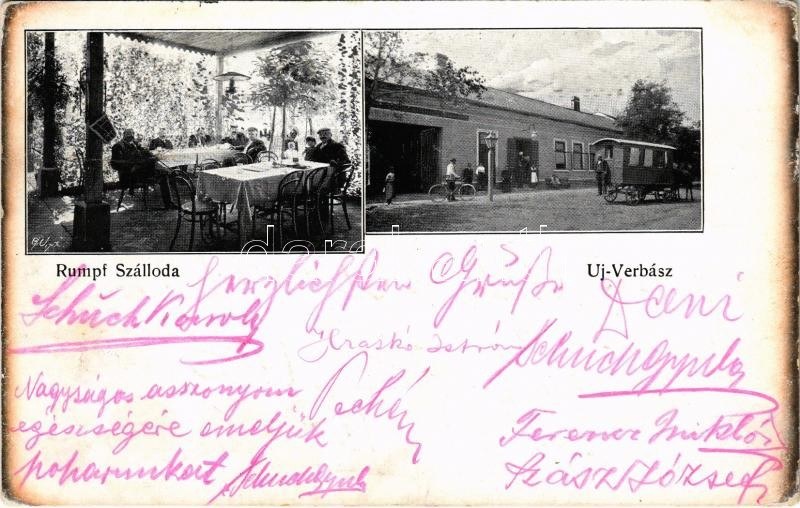 Rumpf Szálloda
Uj-Verbász
Herzlichsten Grüße
Dani
Schuch Karoly
Hraskó István
Schuch Gyula
Nagyságos asszonyom
egészségére emeljük
poharunkat Schuch Gyula
Ferencz Miklós
Szász József